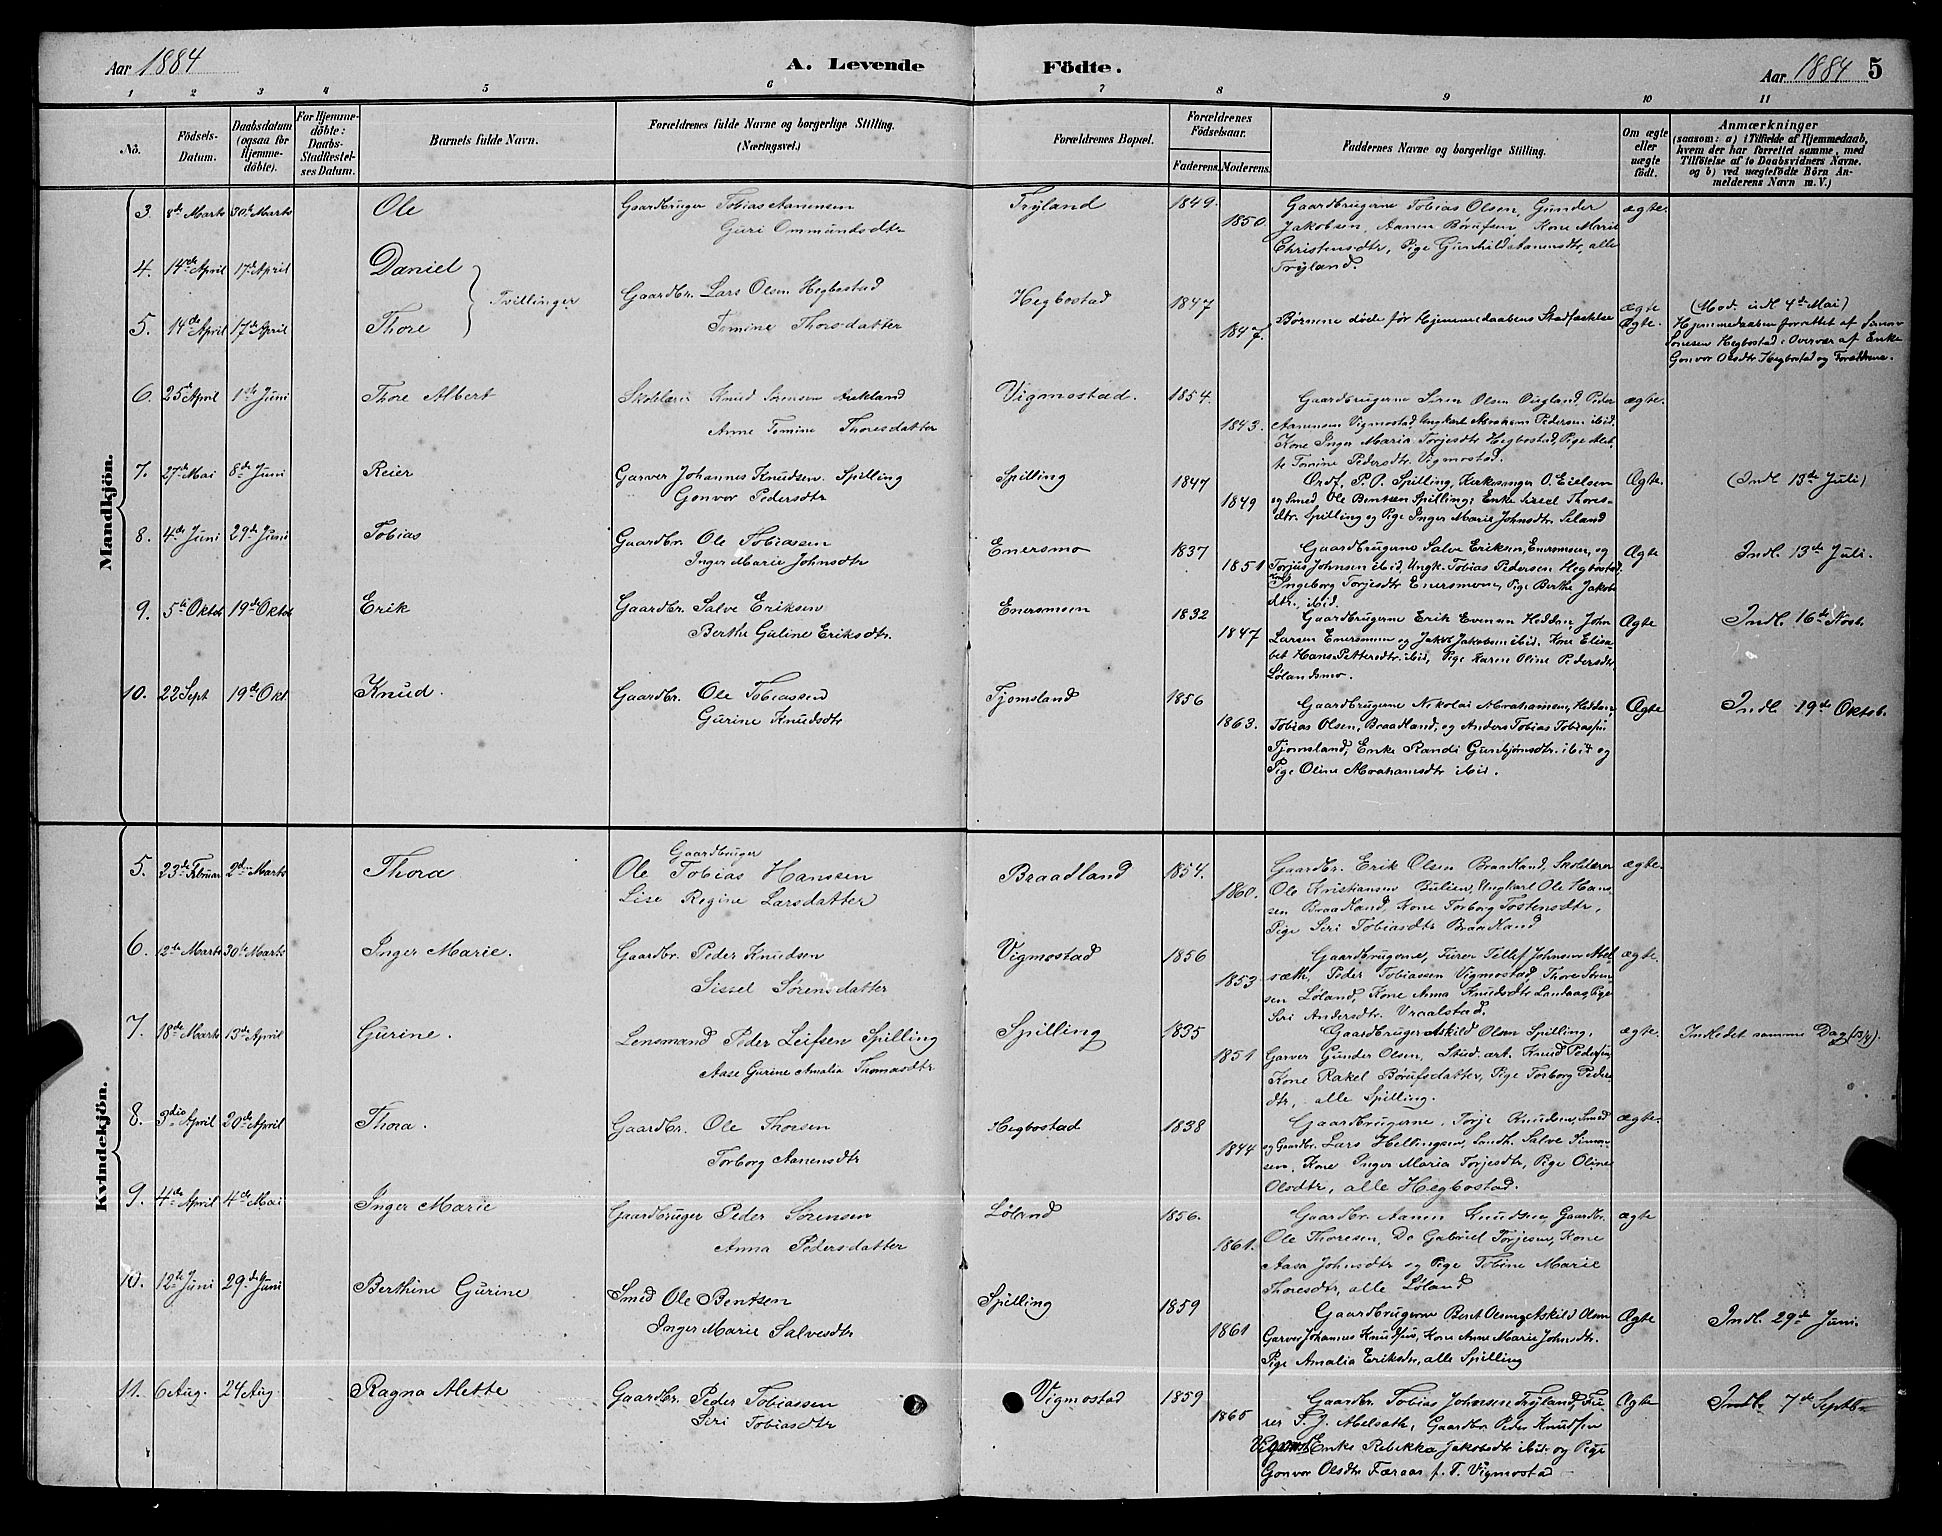 Aar 1884
A. Levende Födte.
Aar 1884 5
1 2 3 4 5 6 7 8 9 10 11
No.
Födsels-Datum.
Daabsdatum (ogsaa for Hjemme-döbte).
For Hjemme-döbte: Daabs-Stadfæstel-ses Datum.
Barnets fulde Navn.
Forældrenes fulde Navne og borgerlige Stilling. (Næringsvei.)
Forældrenes Bopæl.
Forældrenes Födselsaar.
Faderens. Moderens.
Faddernes Navne og borgerlige Stilling.
Om ægte eller uægte födt.
Anmærkninger
(saasom: a) i Tilfælde af Hjemmedaab, hvem der har forrettet samme, med Tilföielse af to Daabsvidners Navne. og b) ved uægtefödte Börn An-melderens Navn m. V.)
Mandkjön.
3. 8de Marts 30te Marts Ole
Gaardbruger Tobias Aanensen
Guri Ommundsdtr
Tryland 1849. 1850.
Gaardbrugerne Tobias Olsen, Gunder
Jakobsen, Aanen Børufsen, Kone Marie
Christensdtr, Pige Gunhild Aanensdtr, alle
Tryland.
ægte.
4. 14de April 17de April Daniel
5. 14de April 17de April Thore
Tvillinger
Gaardbr. Lars Olsen Hegbostad
Tomine Thorsdatter
Hegbostad 1847 1847.
Børnene døde før Hjemmedaabens Stadfæstelse
ægte
Ægte.
(Mod. indl 4de Mai)
Hjemmedaaben forrettet af Simon
Hegbostad i Overvær af Enke
Gonvor Olsdtr Hegbostad og Forældrene.
6. 25 April 1ste Juni Thore Albert
Skolelærer Knud Sørensen
Anne Tomine Thoresdatter
Vigmostad. 1854. 1843.
Gaardbrugerne Søren Olsen Peder
Aanensen Vigmostad, Ungkarl Abraham Pedersen ibid,
Kone Inger Maria Torjesdtr Hegbostad, Pige
Tomine Pedersdtr. Vigmostad.
ægte.
7. 27de Mai 8de Juni Reier
Garver Johannes Knudsen Spilling
Gonvor Pedersdtr
Spilling 1847 1849
Ordf. P. O. Spilling, Kirkesanger O. Eielsen
og Smed Ole Bentsen Spilling; Enke Sissel Thores-
dtr. Spilling og Pige Inger Marie Johnsdtr. Seland
Ægte.
(Indl 13de Juli)
8. 4de Juni 29de Juni Tobias
Gaardbr. Ole Tobiassen
Inger Marie Johnsdtr
Enersmo 1837 1851
Gaardbrugerne Salve Eriksen, Enersmoen, og
Torjus Johnsen ibid Ungk. Tobias Pedersen Hegbostad.
Ingeborg Torjesdtr Enersmoen, Pige Berthe Jakobs
dtr. ibid.
Ægte
Indl. 13de Juli.
9. 5te Oktob 19de Oktob Erik
Gaardbr. Salve Eriksen
Berthe Guline Eriksdtr.
Enersmoen 1832 1847
Gaardbrugerne Erik Evensen Heddan, John
Larsen Enersmoen og Jakob Jakobsen ibid. Kone Elisa-
bet Hans-Pettersdtr ibid, Pige Karen Oline Pedersdtr
Lølandsmo.
Ægte
Indl. 16de Novb.
10. 22 Sept 19de Okt Knud.
Gaardbr. Ole Tobiassen
Gurine Knudsdtr
Tjomsland 1856 1863.
Gaardbrugerne Nikolai Abrahamsen, Heddan,
Tobias Olsen, Braadland, og Anders Tobias Tobiassen
Tjomsland, Enke Randi Gunbjørnsdtr. ibid og
Pige Oline Abrahamsdtr ibid.
Ægte
Indl. 19de Oktob.
Kvindekjön.
5. 23de Februar 2den Marts Thora
Gaardbruger
Ole Tobias Hanssen
Lise Regine Larsdatter
Braadland 1854. 1860.
Gaardbr. Erik Olsen Braadland, Skolelærer
Ole Kristiansen Julien, Ungkarl Ole Hans-
sen Braadland, Kone Torborg Tostensdtr,
Pige Siri Tobiasdtr Braadland
ægte.
6. 12te Marts 30te Marts Inger Marie.
Gaardbr. Peder Knudsen
Sissel Sørensdatter
Vigmostad 1856 1853
Gaardbrugerne, Furer Tellef Johnsen Abel-
sæth, Peder Tobiassen Vigmostad, Thore Sørensen
Løland, Kone Anna Knudsdtr Landaas, Pige
Siri Andersdtr. Vraalstad.
ægte.
7. 18de Marts 13de April Gurine.
Lensmand Peder Leifsen Spilling
Aase Gurine Amalia Thomasdtr.
Spilling 1835 1851
Gaardbruger Askild Olsen Spilling,
Garver Gunder Olsen, Stud. art. Knud Pedersen,
Kone Rakel Børufsdatter, Pige Torborg Peders
dtr, alle Spilling.
ægte.
Indledet samme Dag (13/4).
8. 3die April 20de April Thora.
Gaardbr. Ole Thorsen
Torborg Aanensdtr
Hegbostad 1838 1844
Gaardbrugerne, Torje Knudsen, Smed
og Gaardbr. Lars Hellingsen, Landh. Salve Simon-
sen, Kone Inger Maria Torjesdtr, Pige Oline
Olsdtr, alle Hegbostad.
ægte.
9. 4de April 4de Mai Inger Marie
Gaardbruger Peder Sørensen
Anna Pedersdatter
Løland 1856. 1861.
Gaardbr. Aanen Knudsen, Gaardbr.
Ole Thoresen, Do Gabriel Torjesen, Kone
Aasa Johnsdtr og Pige Tobine Marie
Thoresdtr, alle Løland
ægte
10. 12te Juni 29de Juni Berthine Gurine
Smed Ole Bentsen
Inger Marie Salvesdtr
Spilling 1859 1861
Gaardbrugerne Bent Olsen og Askild Olsen
Garver Johannes Knudsen, Kone Anne Marie Johnsdtr.
Pige Amalia Eriksdtr, alle Spilling
Ægte
Indl. 29de Juni.
11. 6 Aug. 24 Aug. Ragna Alette
Gaardbr. Peder Tobiassen
Siri Tobiasdtr
Vigmostad 1859 1865
Gaardbr. Tobias Johnsen Tryland, Fu-
rer T. J. Abelsæth, Gaardbr. Peder Knudsen
Vigmost. Enke Rebekka Jakobsdtr ibid. og Pige
Gonvor Olsdtr Faraas f. T. Vigmostad
Ægte
Indl. 7de Septb.